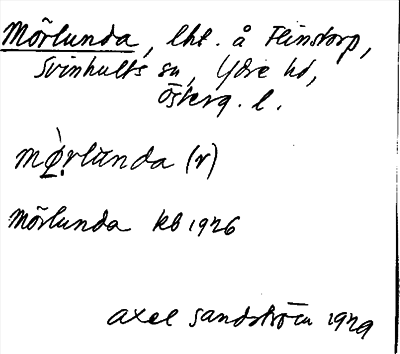 Mörlunda, lht. å Flinstorp,
Svinhults sn, Ydre hd,
Österg. l.
mø̀rlu̇nda (r)
Mörlunda kb 1926
Axel Sandström 1929